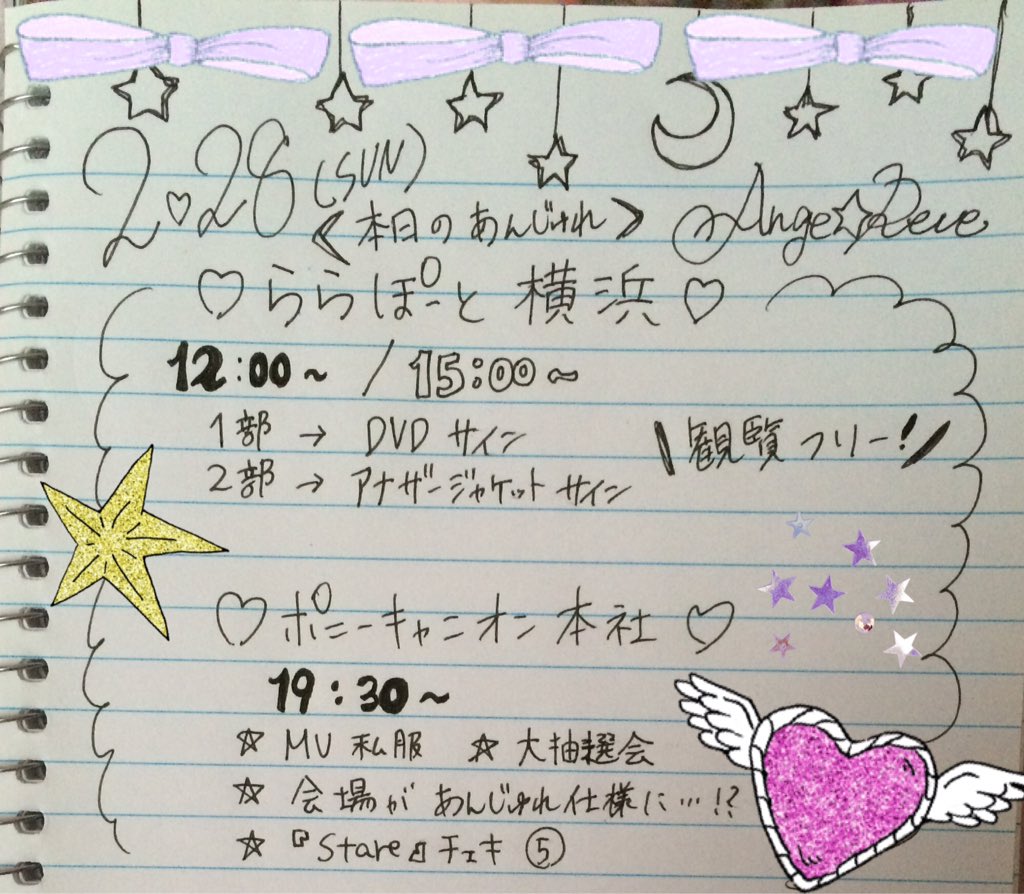 2♡28(SUN)
《本日のあんじゅれ》 Ange☆Reve
♡ららぽーと 横浜♡
12:00~ / 15:00~
1部 → DVD サイン
2部 → アナザージャケット サイン
\観覧フリー!/
♡ポニーキャニオン本社♡
19:30~
☆ MV 私服 ☆ 大抽選会
☆ 会場が あんじゅれ仕様に…!?
☆ 『Stare』チェキ ⑤